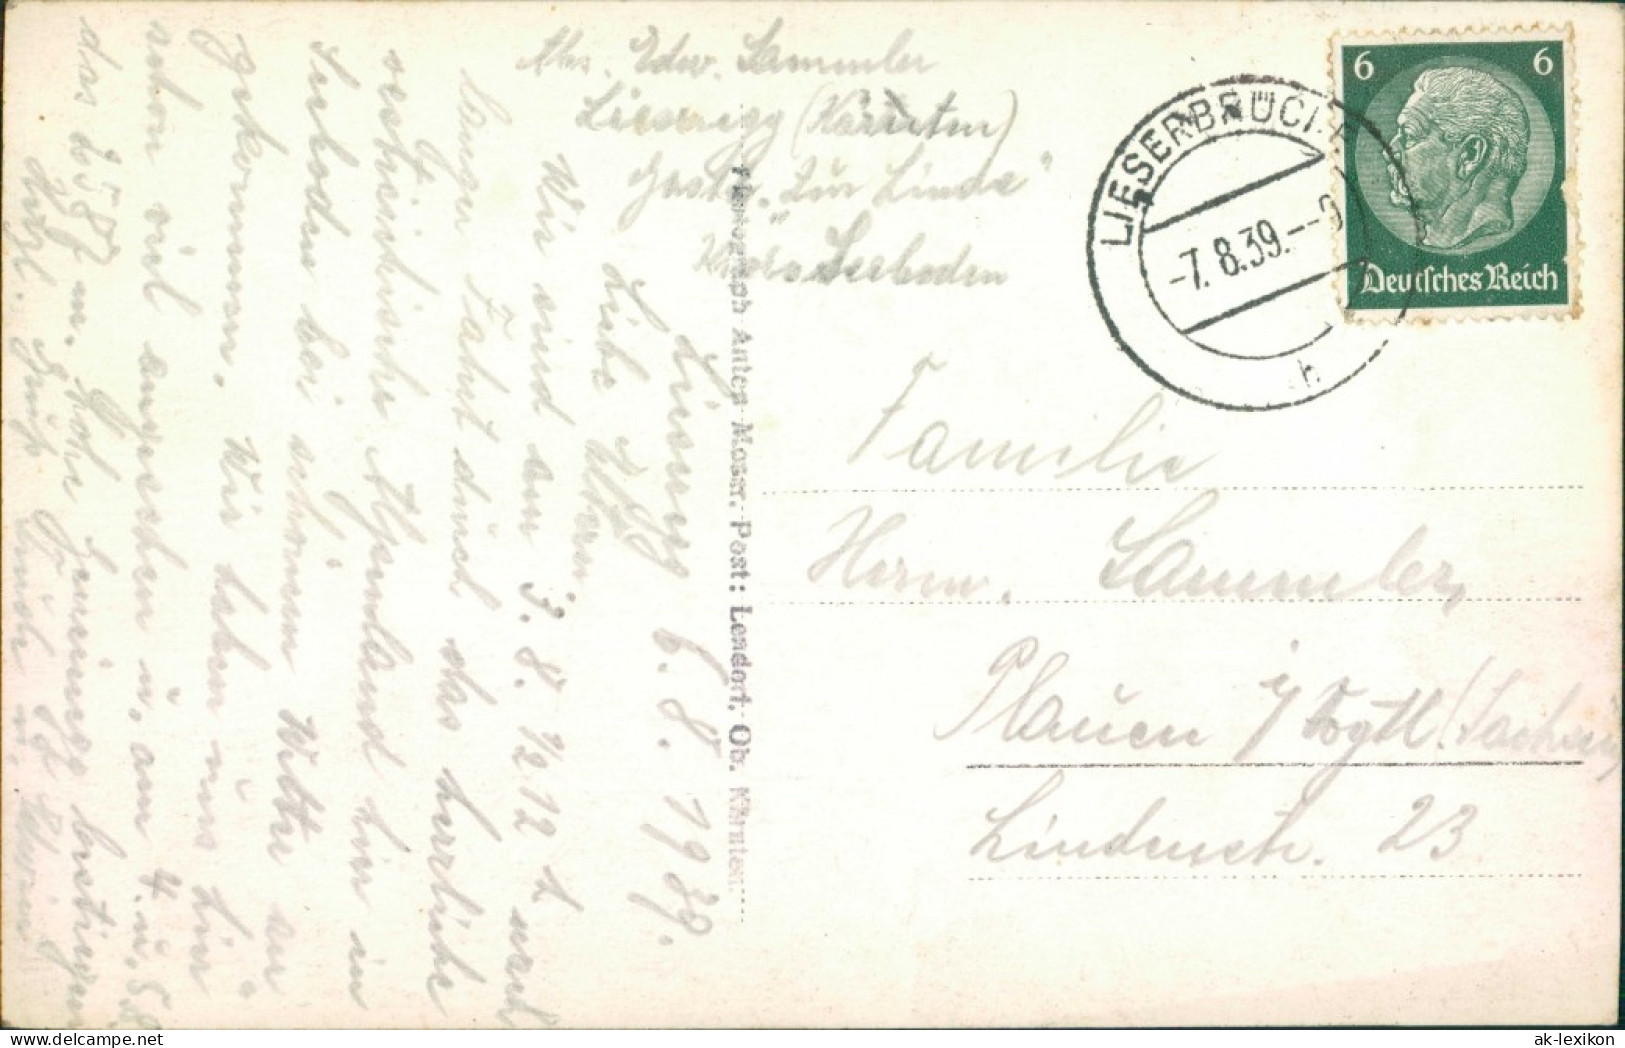 Abs. Edw. Sammler
Lieseregg (Kärnten)
Gasth. "Zur Linde"
Seeboden
LIESERBRÜCKE
-7.8.39.--9
h
6 6
Deutsches Reich
Familie
Herm. Sammler,
Plauen i/Vogtl. (Sachsen)
Lindenstr. 23
Photograph Anton Moser, Post: Lendorf, Ob. Kärnten
Lieseregg 6.8.1939.
Liebe Eltern!
Wir sind am 3.8. 1/2 12 h nach
langer Fahrt durch das herrliche
oestreichische Alpenland hier in
Seeboden bei schönem Wetter an-
gekommen. Wir haben uns hier
schon viel angesehen u. am 4. u. 5.8.
das 2587 m hohe bestiegen
Herzl. Grüße Edwin
ak-lexikon